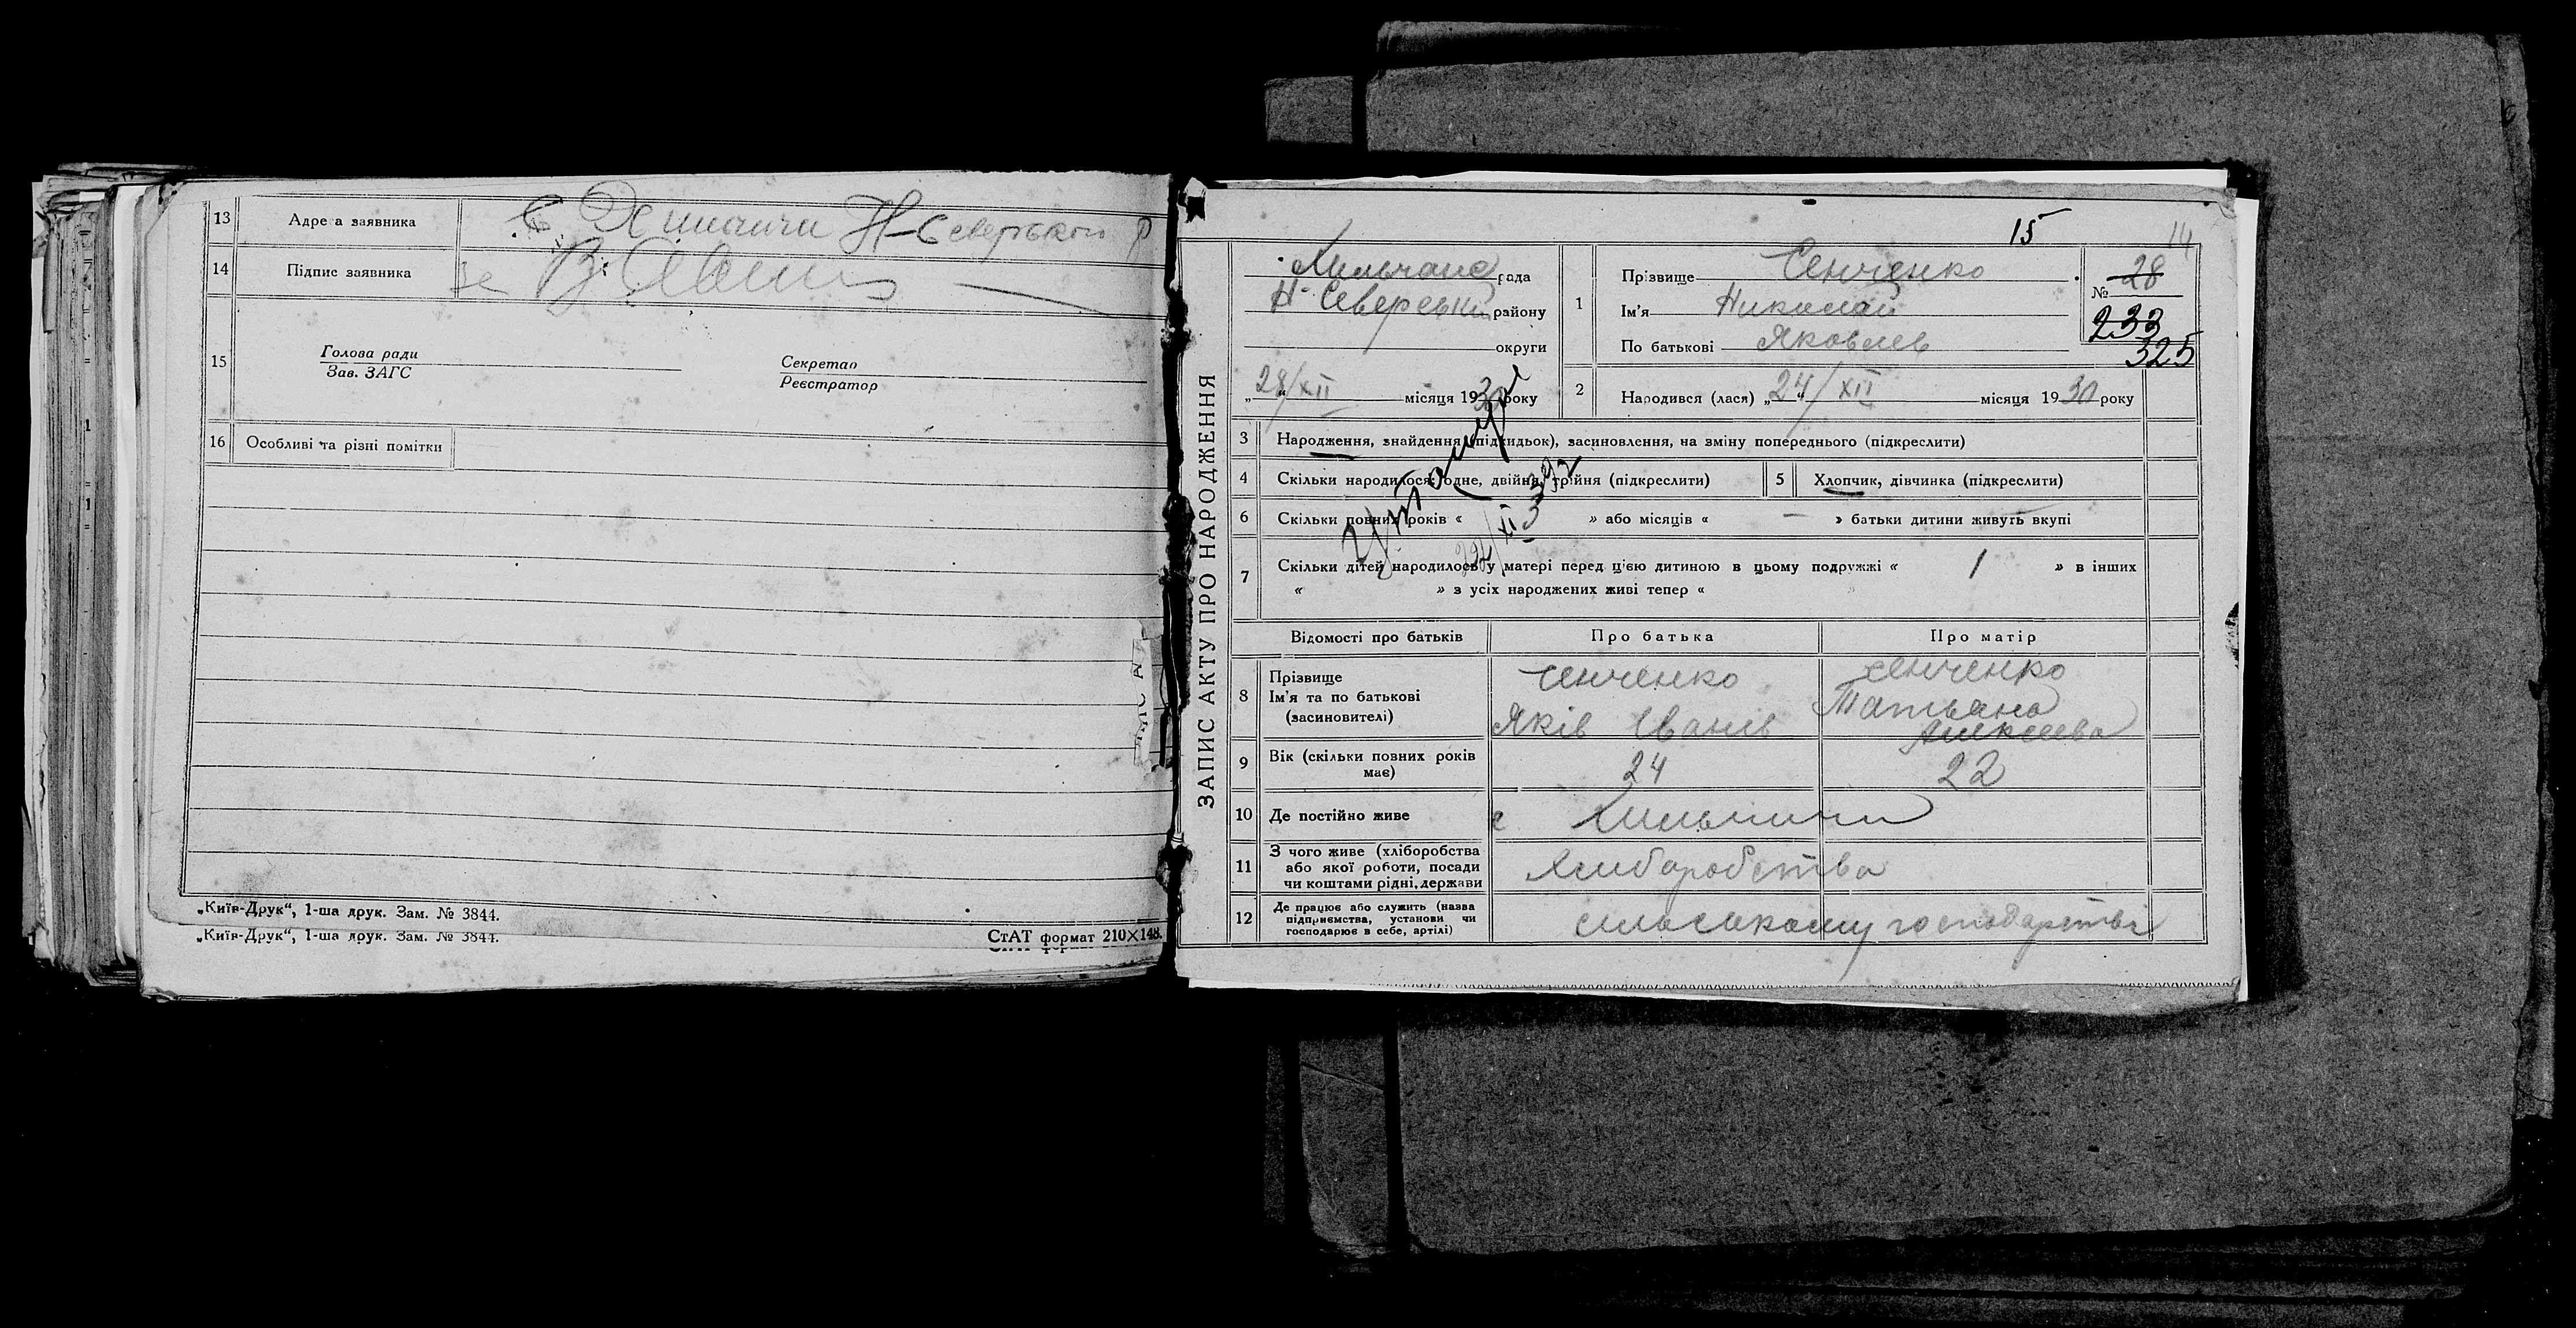 13 Адреса заявника Н-Сєверського р
14 Підпис заявника
15 Голова ради
Зав. ЗАГС
Секретар
Реєстратор
16 Особливі та різні помітки
„Київ-Друк“, 1-ша друк. Зам. № 3844.
„Київ-Друк“, 1-ша друк. Зам. № 3844.
СтАТ формат 210×148.
15 14
ЗАПИС АКТУ ПРО НАРОДЖЕННЯ
рада
Н-Сєверськи району
округи
„28/XII“ місяця 1930 року
1 Прізвище Сенченко
Ім'я Николай
По батькові Яковлев
№ 28
233
325
2 Народився (лася) „24/XII“ місяця 1930 року
3 Народження, знайдення (підкидьок), засиновлення, на зміну попереднього (підкреслити)
4 Скільки народилося: одне, двійня, трійня (підкреслити) 5 Хлопчик, дівчинка (підкреслити)
6 Скільки повних років « » або місяців « — » батьки дитини живуть вкупі
7 Скільки дітей народилось у матері перед цією дитиною в цьому подружжі « 1 » в інших
« » з усіх народжених живі тепер «
Відомості про батьків Про батька Про матір
8 Прізвище
Ім'я та по батькові
(засиновителі)
Сенченко
Яків Іванів
Сенченко
Татьяна
Алексеева
9 Вік (скільки повних років
має)
24 22
10 Де постійно живе с Хильчичи
11 З чого живе (хліборобства
або якої роботи, посади
чи коштами рідні, держави
Хлибаробства
12 Де працює або служить (назва
підприємства, установи чи
господарює в себе, артілі)
сильському господарстві